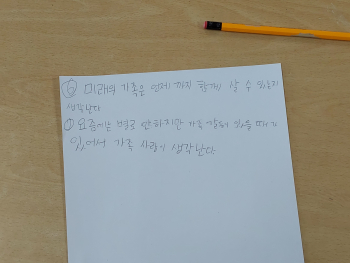 ⑥ 미래의 가족은 언제 까지 함께 살 수 있는지
생각난다
① 요즘에는 별로 안하지만 가족 할때 있을 때가
있어서 가족 사랑이 생각난다.